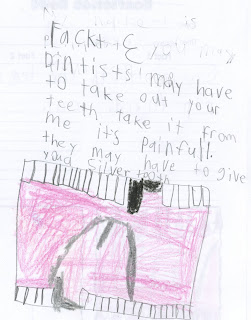 Fackt
Dintists may have
to take out your
teeth take it from
me its painfull.
they may have to give
Silver tooth